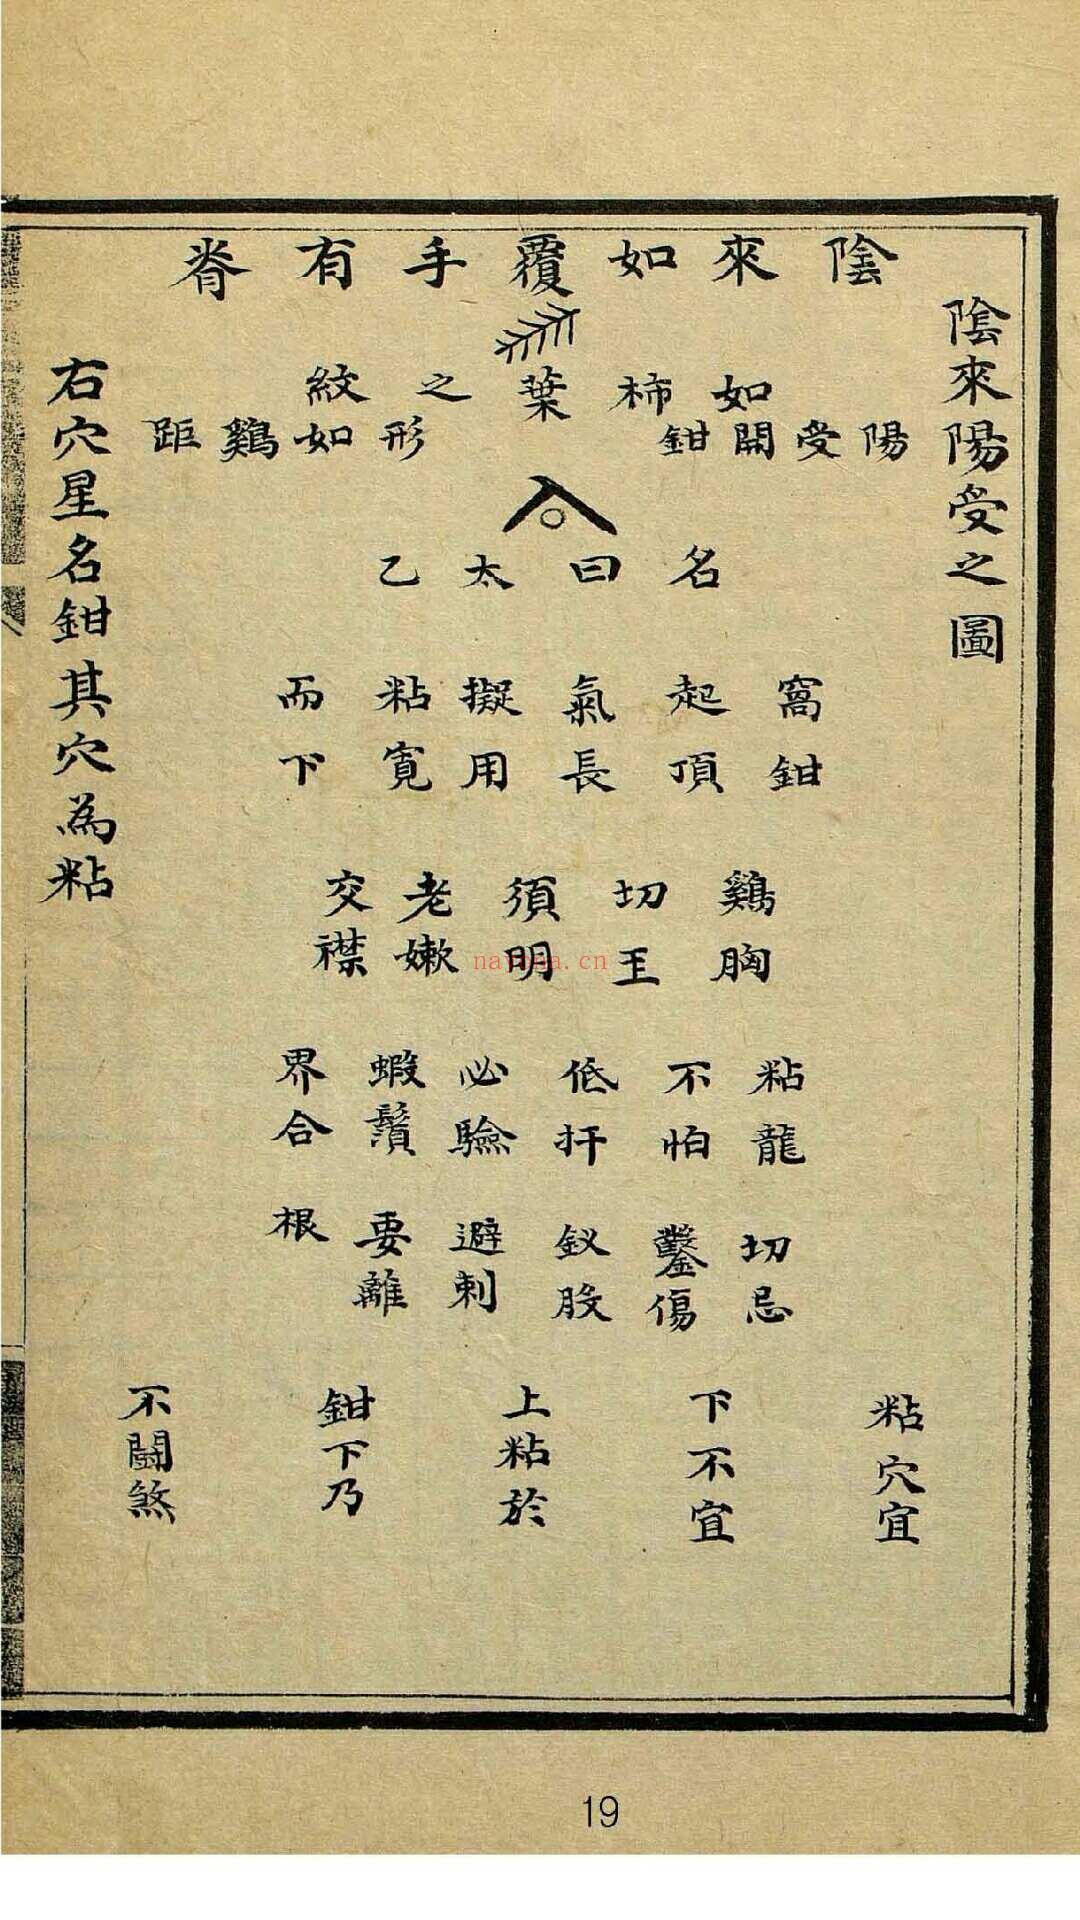 陰來陽受之圖
陰來如覆手有脊
如柿葉之紋
陽受開鉗
形如鷄距
名曰太乙
窩鉗
起頂
氣長
擬用
粘寬
而下
鷄胸
切玉
須明
老嫰
交襟
粘龍
不怕
低扦
必驗
蝦鬚
界合
切忌
鑿傷
釵股
避刺
要離
根
粘穴宜
下不宜
上粘於
鉗下乃
不鬪煞
右穴星名鉗其穴為粘
nayona.cn
19